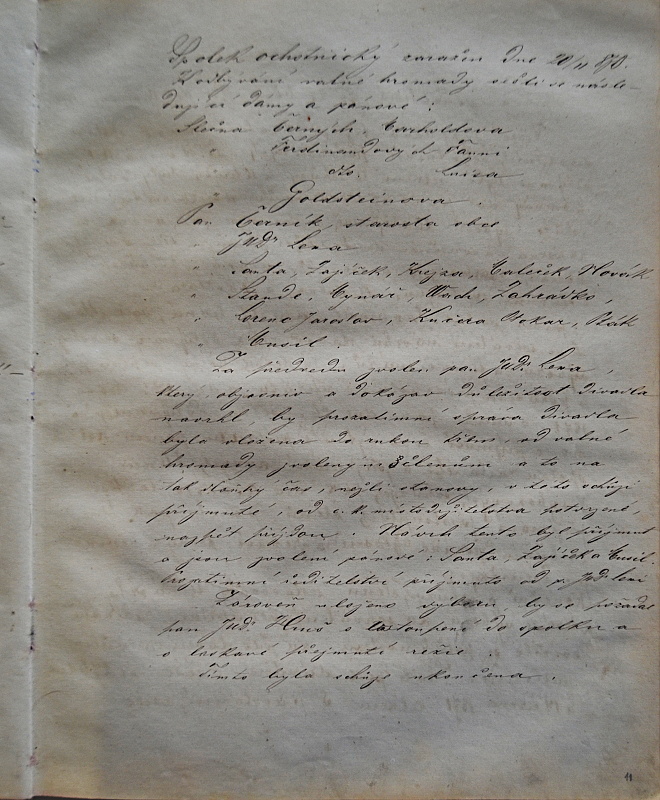 Spolek ochotnický zaražen dne 20/11 870.
K odbývání valné hromady sešli se násle-
dující dámy a pánové:
Slečna Černých,
" Ferdinandových Fanni
dto. Luisa
Goldsteinova.
Pan Černík, starosta obce
JUDr Lena
" Santa, Zajíček, Krejza, Novák
" Stande, Wach, Zahrádko,
" Lorenc Jaroslav, Kučera Otokar, Pták
" Cusil.
Za předsedu zvolen pan JUDr Lena,
který objasniv a dokázav důležitost divadla
navrhl, by prozatimní správa divadla
byla vložena do rukou třem, od valné
hromady zvoleným členům a to na
tak dlouhý čas, nežli stanovy, v této schůzi
přijmuté, od c. k. místodržitelstva potvrzené,
nazpět přijdou. Návrh tento byl přijmut
a jsou zvoleni pánové: Santa, Zajíček a Cusil.
Prozatimní ředitelství přijmuto od p. JUDr Leni
Zároveň uloženo výboru, by se požádal
pan JUDr Hruš o zastoupení do spolku a
o laskavé přejmutí režie.
Tímto byla schůze ukončena.
11